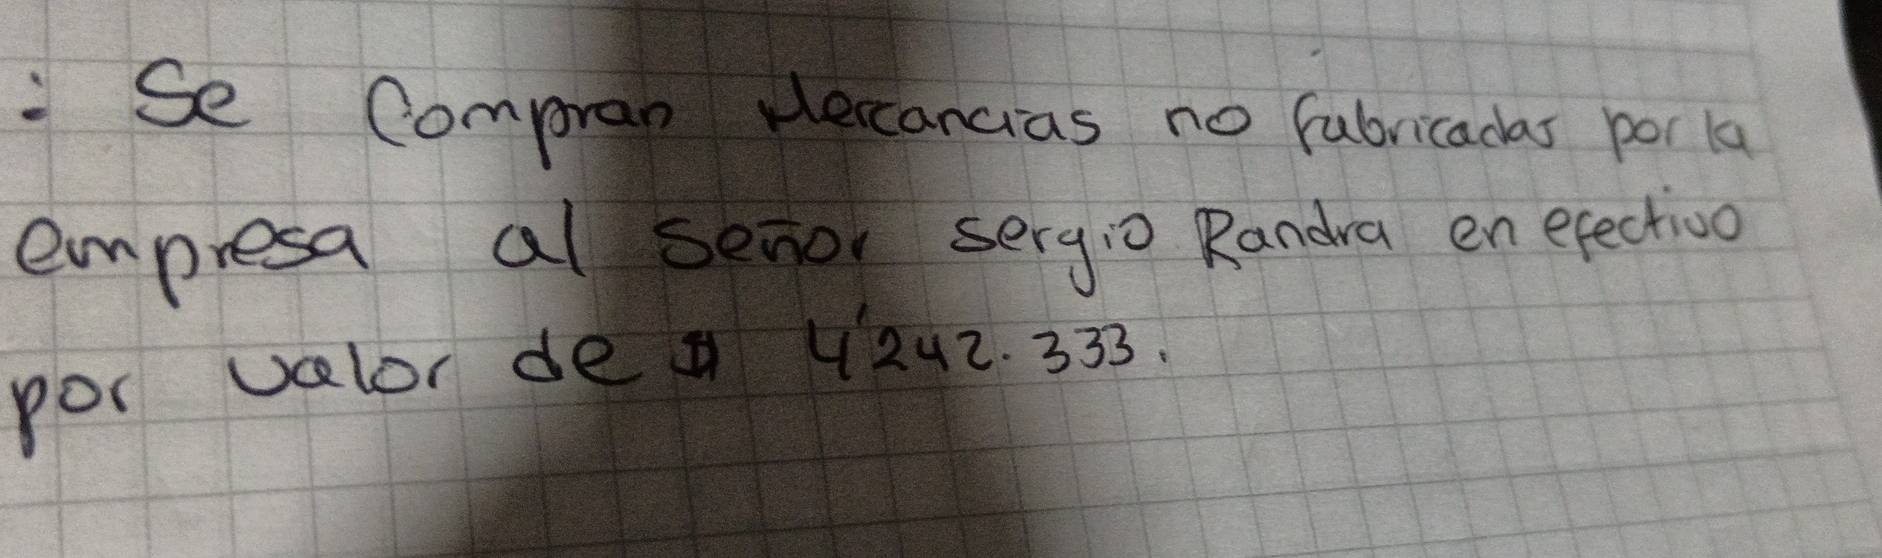 : Se Compran Mercancias no fabricadas por la
empresa al señor sergio Randra en efectivo
por valor de $ 4'242.333.